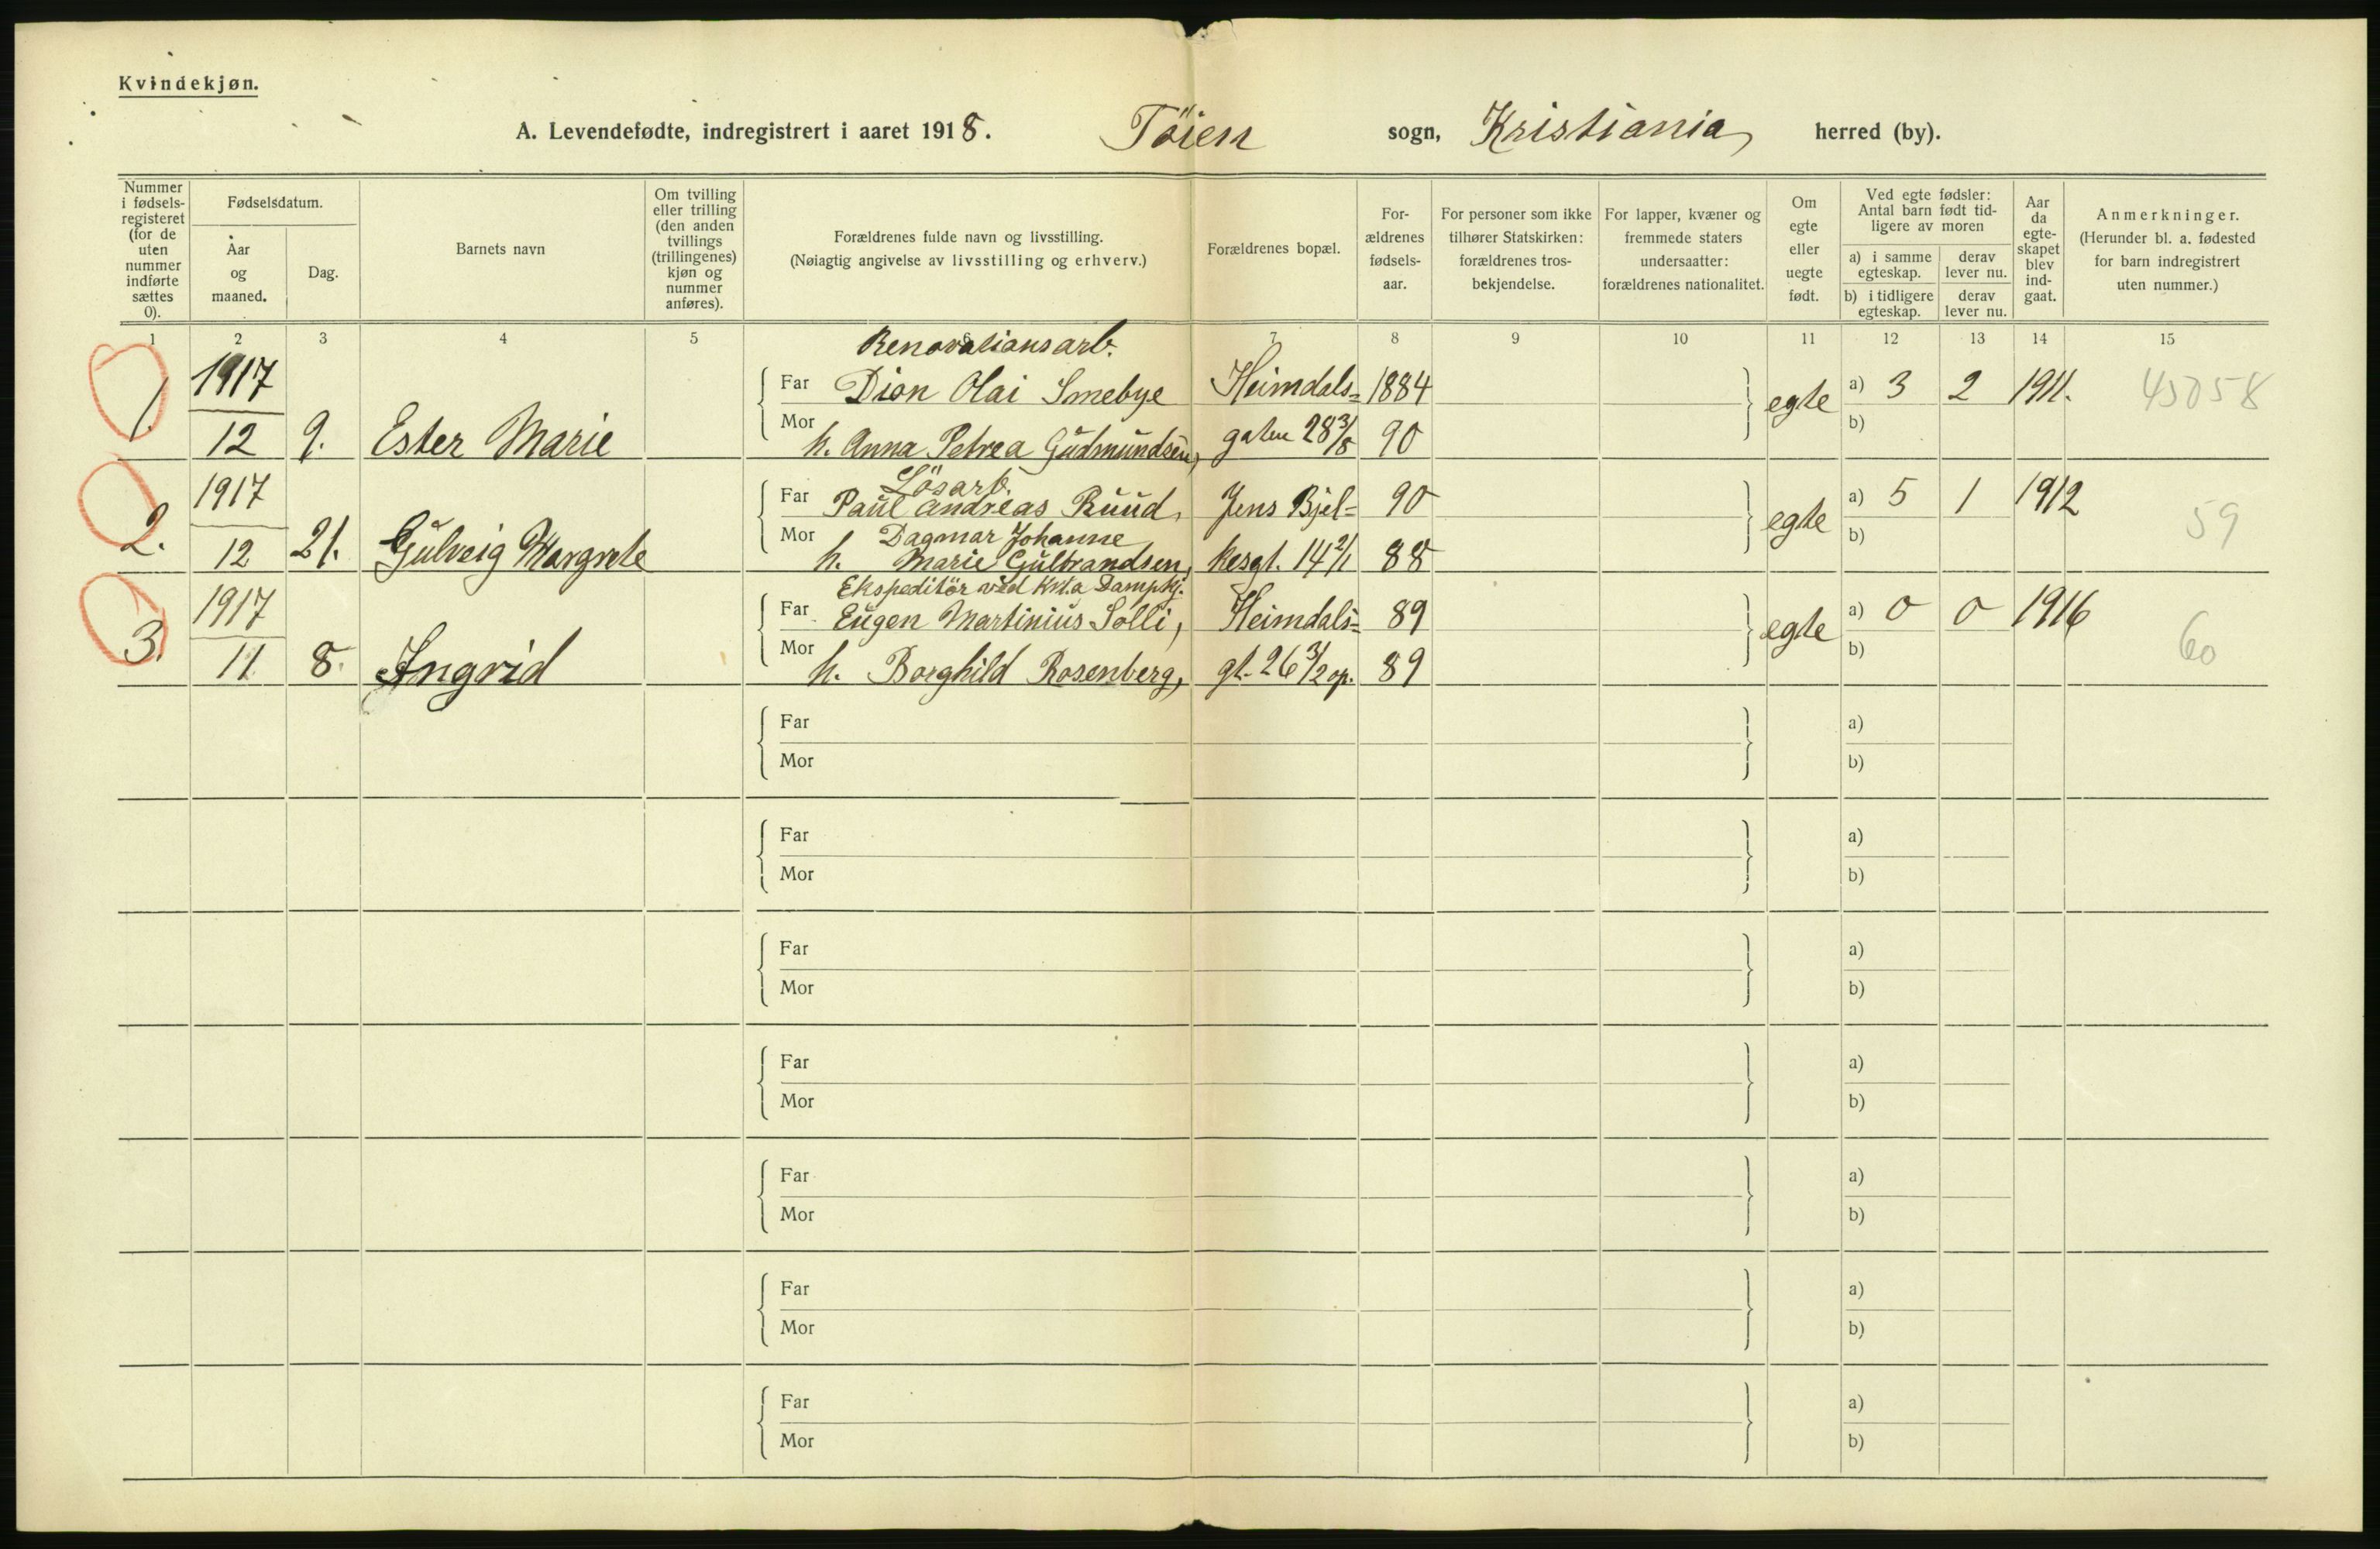 Kvindekjøn.
A. Levendefødte, indregistrert i aaret 1918. Töien sogn, Kristiania herred (by).
Nummer i fødsels-registeret (for de uten nummer indførte sættes 0).
Fødselsdatum.
Aar og maaned.
Dag.
Barnets navn
Om tvilling eller trilling (den anden tvillings (trillingenes) kjøn og nummer anføres).
Forældrenes fulde navn og livsstilling.
(Nøiagtig angivelse av livsstilling og erhverv.)
Forældrenes bopæl.
For-ældrenes fødsels-aar.
For personer som ikke tilhører Statskirken: forældrenes tros-bekjendelse.
For lapper, kvæner og fremmede staters undersaatter: forældrenes nationalitet.
Om egte eller uegte født.
Ved egte fødsler: Antal barn født tid-ligere av moren
a) i samme egteskap. derav lever nu.
b) i tidligere egteskap. derav lever nu.
Aar da egte-skapet blev ind-gaat.
Anmerkninger.
(Herunder bl. a. fødested for barn indregistrert uten nummer.)
1 2 3 4 5 6 7 8 9 10 11 12 13 14 15
Renovationsarb.
1. 1917 Far Dion Olai Smebye Heimdals= 1884 egte a) 3 2 1911. 45058
12 9. Ester Marie Mor h. Anna Petrea Gudmundsen, gaten 28 3/8 90 b)
Lösarb.
2. 1917 Far Paul Andreas Ruud, Jens Bjel= 90 egte a) 5 1 1912 59
Mor Dagmar Johanne b)
12 21. Gulveig Margrete h. Marie Gulbrandsen, kesgt. 14 2/1 88
Ekspeditör ved Kr.a Dampskj.
3. 1917 Far Eugen Martinius Solli, Heimdals= 89 egte a) 0 0 1916 60
11 8. Ingrid Mor h. Borghild Rosenberg, gt. 26 3/2 op. 89 b)
Far a)
Mor b)
Far a)
Mor b)
Far a)
Mor b)
Far a)
Mor b)
Far a)
Mor b)
Far a)
Mor b)
Far a)
Mor b)